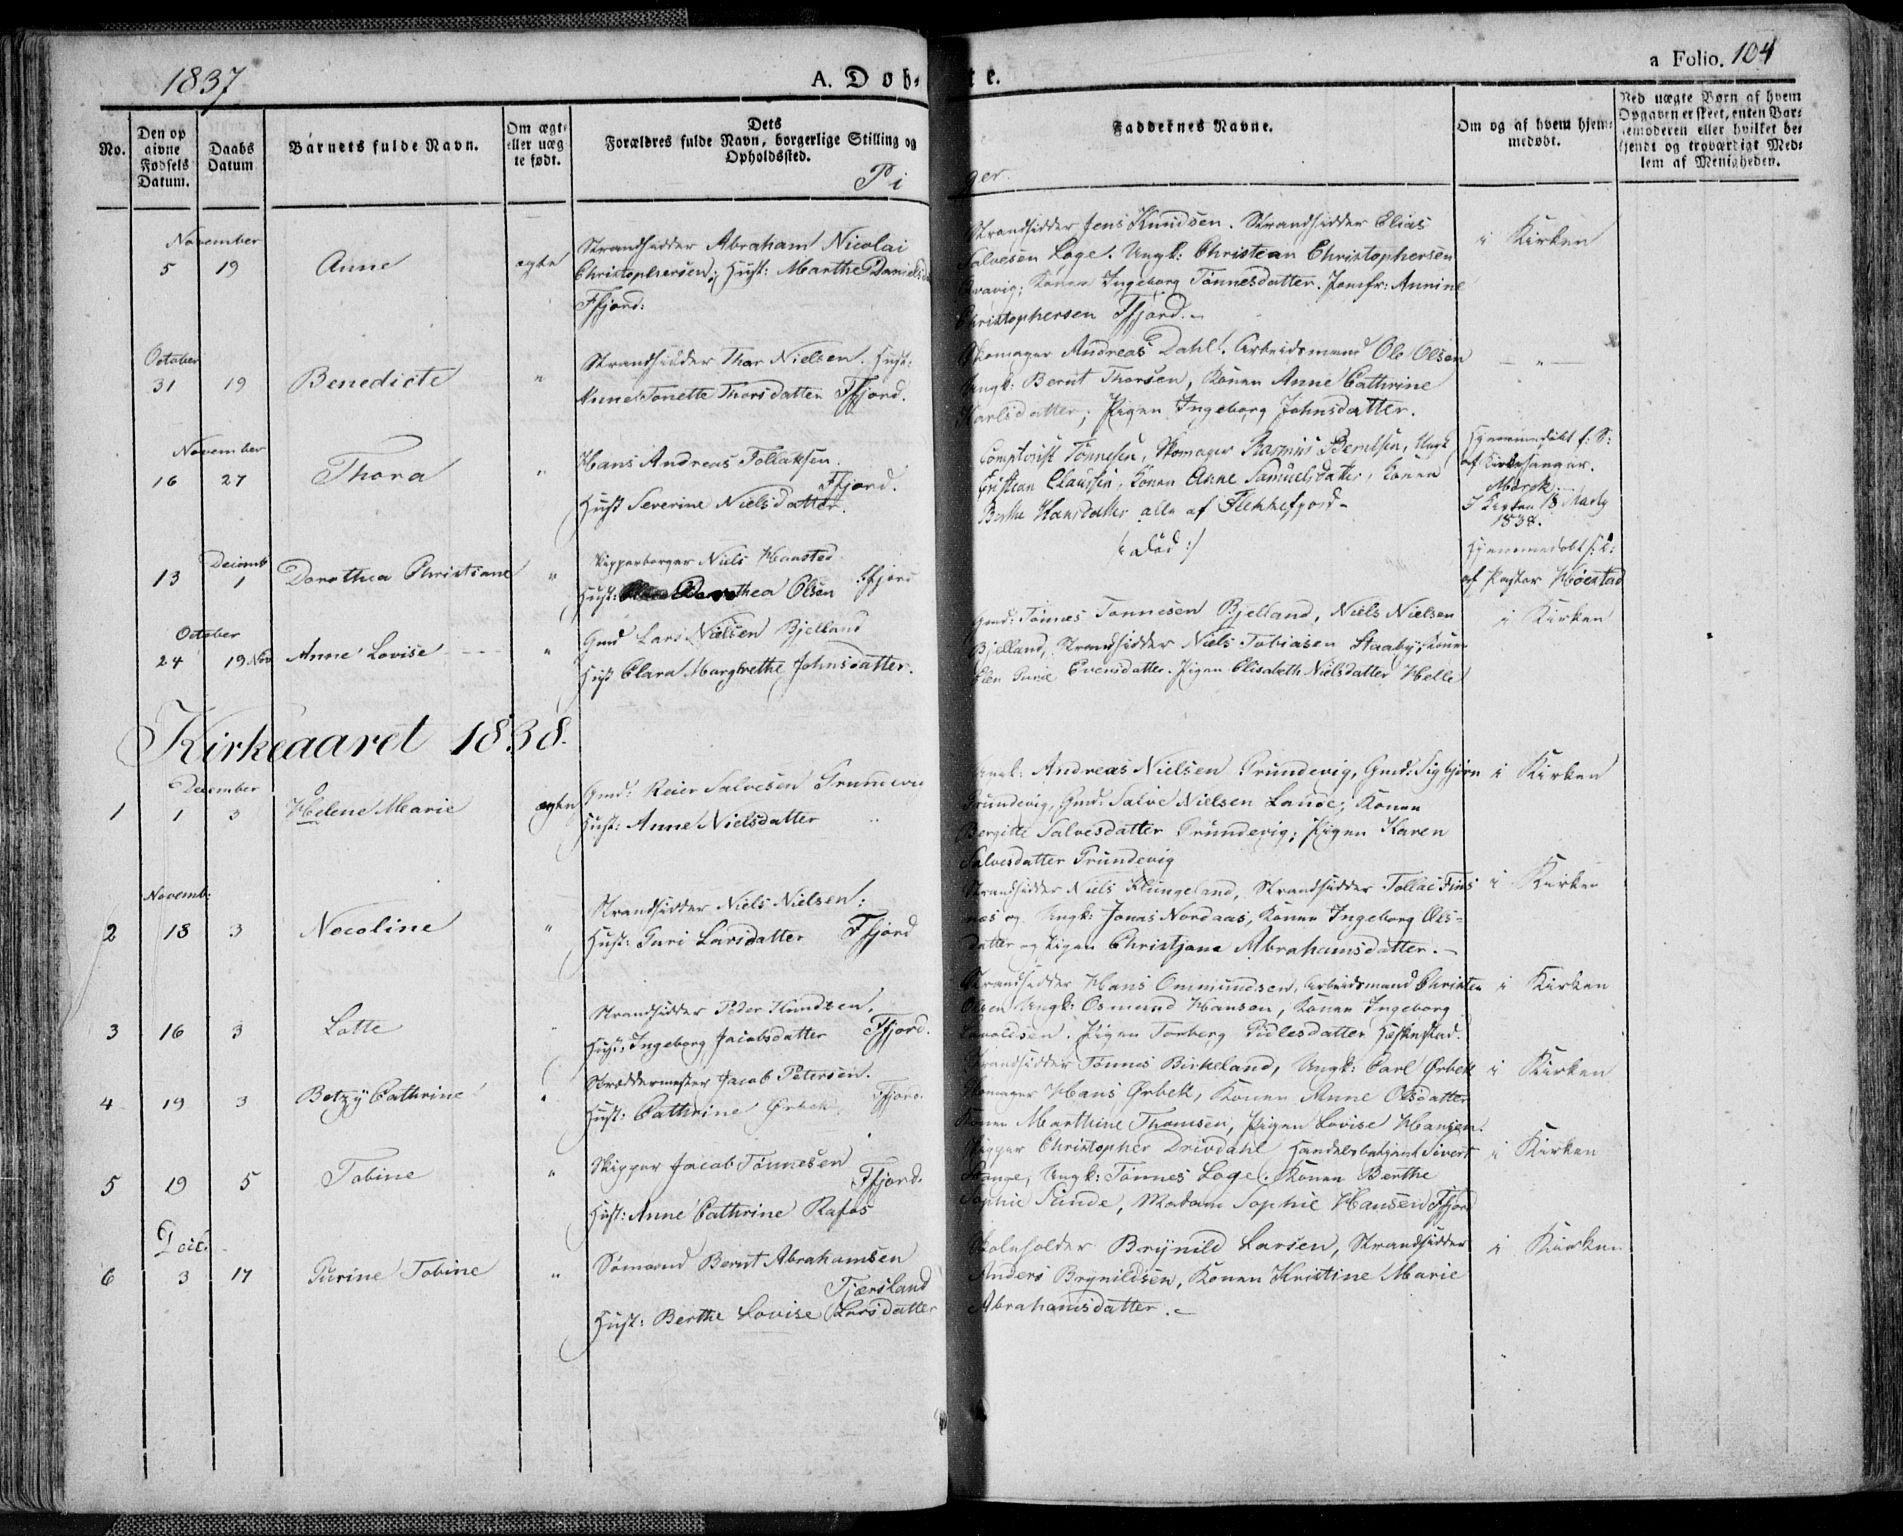 1837
A. Døb-te.
a Folio. 104
No.
Den opgivne Fødsels Datum.
Daabs Datum
Barnets fulde Navn.
Om ægte eller uægte født.
Dets
Forældres fulde Navn, borgerlige Stilling og
Opholdssted.
Faddernes Navne.
Om og af hvem hjemmedøbt.
Ved uægte Børn af hvem
Opgaven er skeet, enten Barnemoderen eller hvilket bekjendt og troværdigt Medlem af Menigheden.
Piger.
November
5 19 Anne ægte
Strandsidder Abraham Nicolai
Christophersen; Hust: Marthe Daniels
Ffjord:
Strandsidder Jens Knudsen. Strandsidder Elias
Salvesen Loge. Ungk: Christean Christophersen
Konen Ingeborg Tønnesdatter. Jomfr: Annine
Christophersen Ffjord.
i Kirken
October
31 19 Benedicte "
Strandsidder Thor Nielsen. Hust:
Anne Tonette Thorsdatter Ffjord.
Skomager Andreas Dahl. Arbeidsmand Ole Olsen
Ungk: Bernt Thorsen, Konen Anne Cathrine
Karlsdatter; Pigen Ingeborg Johnsdatter.
— " —
November
16 27 Thora "
Hans Andreas Tollaksen
Ffjord.
Hust Severine Nielsdatter.
Comptorist Tønnesen, Skomager Rasmus Berntsen, Ungk
Cristean Claussen, Konen Anne Samuelsdatter, Konen
Berthe Hansdatter alle af Flekkefjord
Hjemmedøbt f: S:
af Kirkesanger
Mørck.
I Kirken 18 Marty
1838.
Decemb
13 1 Dorothea Christiane "
Skipperborger Niels Hansted
Hust: Dorothea Olsen Ffjord
/: død :/
Hjemmedøbt f: S:
af Pastor Høestad
October
24 19 Nov Anne Lovise "
Gmd Lars Nielsen Bjelland
Hust Clara Margrethe Johnsdatter.
Gmd: Tønnes Tønnesen Bjelland, Niels Nielsen
Bjelland, Strandsidder Niels Tobiasen Staaby; Konen
Elen Evensdatter. Pigen Elisabeth Nielsdatter Helle
i Kirken
Kirkeaaret 1838.
December
1 1 3 Helene Marie ægte
Gmd: Reier Salvesen Trundevig
Hust: Anne Nielsdatter
Ungk: Andreas Nielsen Trundevig, Gmd: Sigbjørn
Trundevig, Gmd: Salve Nielsen Konen
Bergitte Salvesdatter Trundevig; Pigen Karen
Salvesdatter Trundevig
i Kirken
Novemb:
2 18 3 Nocoline "
Strandsidder Niels Nielsen:
Hust: Guri Larsdatter Ffjord
Strandsidder Niels Klungeland, Strandsidder Tollac
og Ungk: Jonas Nordaas, Konen Ingeborg Ols-
datter og Pigen Christjane Abrahamsdatter.
i Kirken
3 16 3 Lotte
Strandsidder Peder Knudsen,
Hust: Ingeborg Jacobsdatter Ffjord.
Strandsidder Hans Ommundsen, Arbeidsmand Christen
Olsen Ungk: Osmund Hansen, Konen Ingeborg
Pigen Torberg
i Kirken
4 19 3 Betzy Cathrine "
Skræddermester Jacob Petersen.
Hust: Cathrine Ørbek Ffjord.
Strandsidder Tønnes Birkeland, Ungk: Carl Ørbek
Skomager Hans Ørbek, Konen Anne Olsdatter
Konen Marthine Thomsen, Pigen Lovise Hansen.
i Kirken
5 19 5 Tobine "
Skipper Jacob Tønnesen
Ffjord.
Hust: Anne Cathrine Rafos
Skipper Christopher Drivdahl Handelsbetjent Sivert
Stange, Ungk: Tønnes Loge. Konen Berthe
Sophie Sunde, Madam Sophie Hansen Ffjord
i Kirken
Dec.
6 3 17 Gurine Tobine "
Sømand Bernt Abrahamsen
Tjærsland
Hust: Berthe Lovise Larsdatter
Skoleholder Brynild Larsen, Strandsidder
Anders Brynildsen, Konen Kristine Marie
Abrahamsdatter.
i Kirken